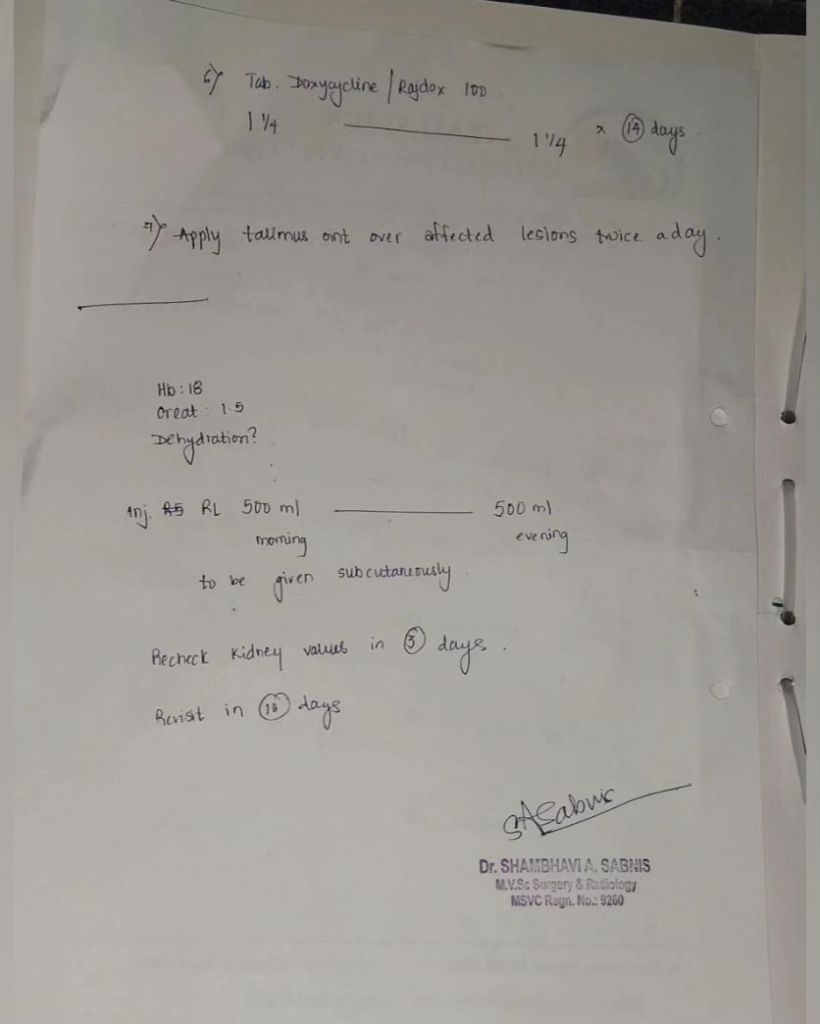 6) Tab. Doxycycline / Rajdox 100
1 1/4 ——— 1 1/4 x 14 days.
7) Apply talimus oint over affected lesions twice a day.
Hb : 18
Creat : 1.5
Dehydration?
Inj. RL 500 ml ——— 500 ml
morning evening
to be given subcutaneously.
Recheck kidney values in days.
Revisit in 10 days
SASabnis
Dr. SHAMBHAVI A. SABNIS
M.V.Sc Surgery & Radiology
MSVC Regn. No.: 9260